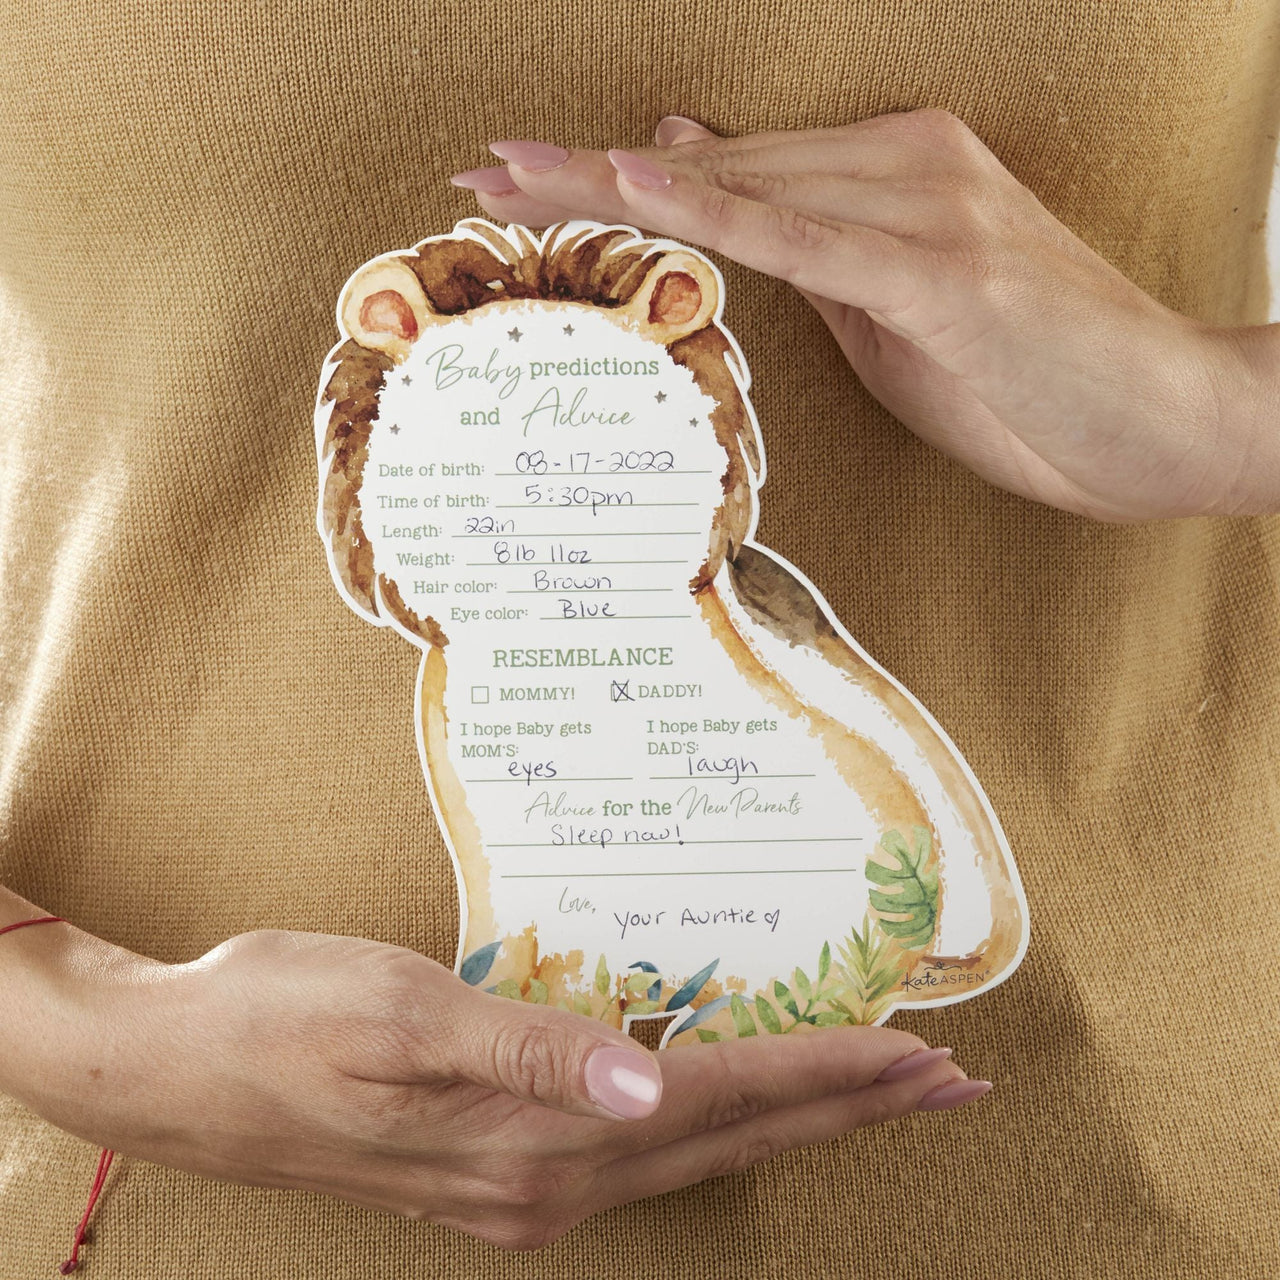 Baby predictions
and Advice
Date of birth: 08-17-2022
Time of birth: 5:30pm
Length: 22in
Weight: 8lb 11oz
Hair color: Brown
Eye color: Blue
RESEMBLANCE
MOMMY! DADDY!
I hope Baby gets I hope Baby gets
MOM'S: DAD'S:
eyes laugh
Advice for the New Parents
Sleep now!
Love, your Auntie
Kate ASPEN